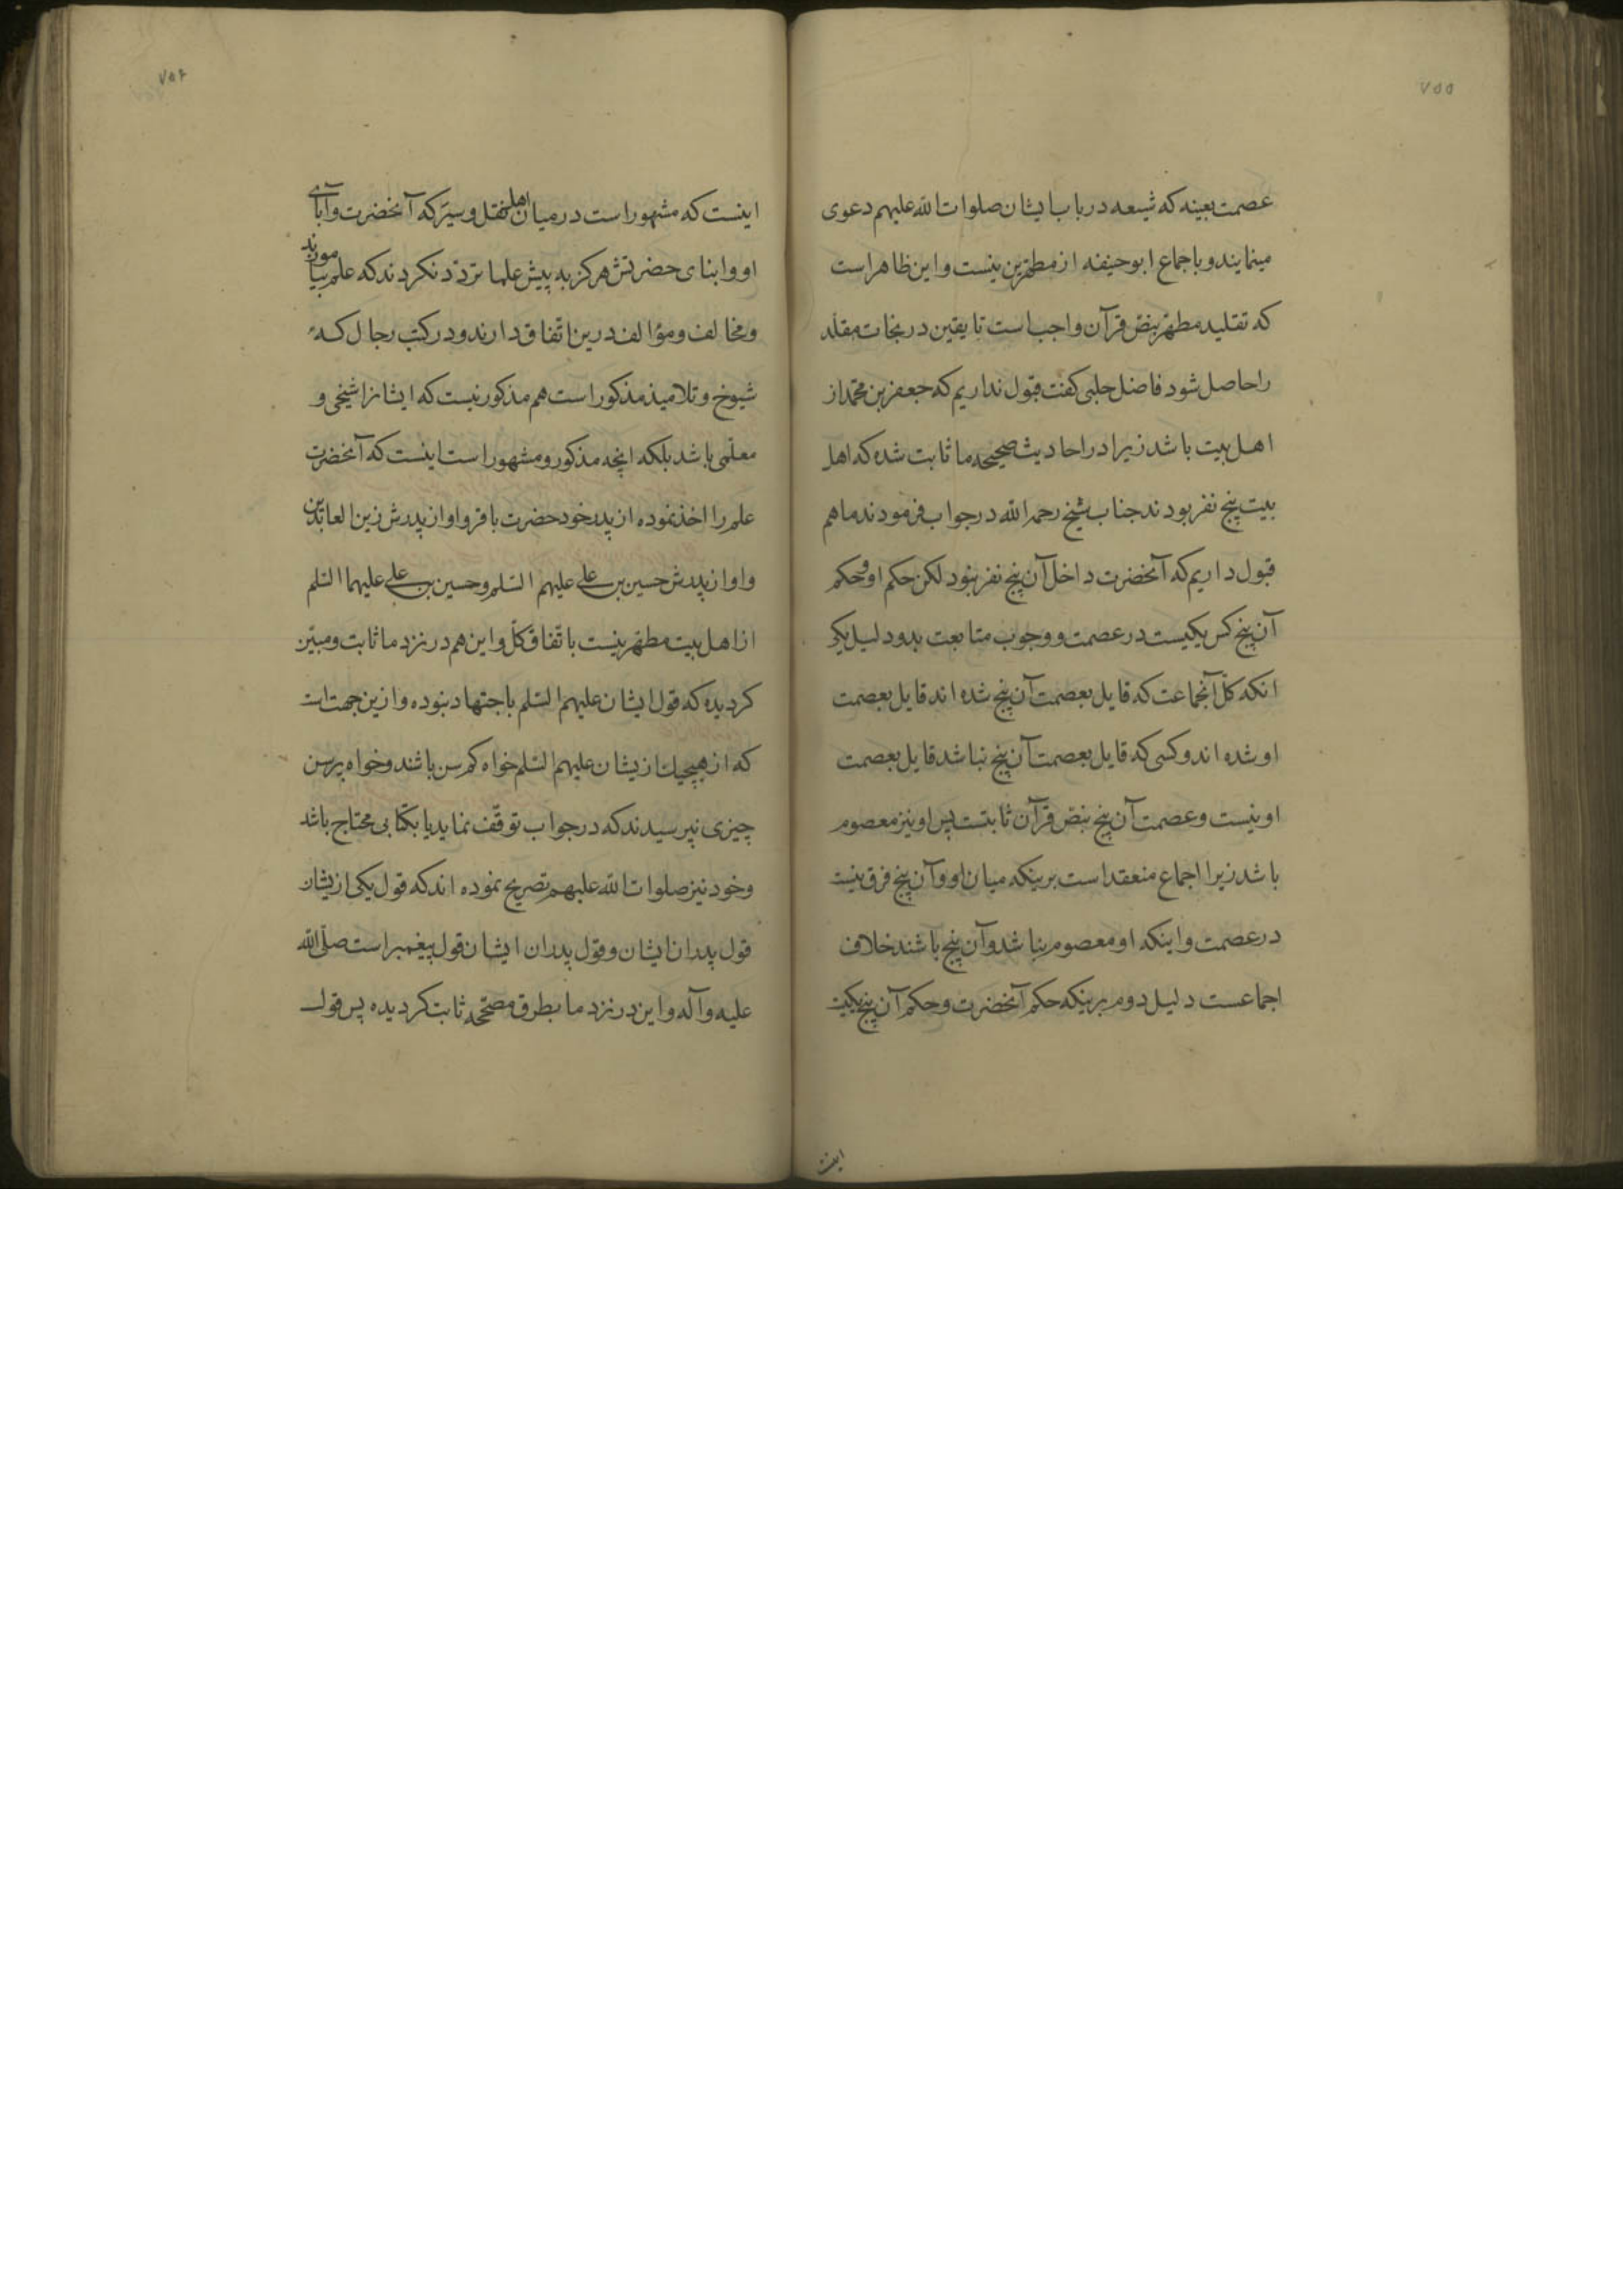 ۷۵۵
عصمت بعینه که شیعه در باب ایشان صلوات الله علیهم دعوی
مینمایند و باجماع ابو حنیفه از مطهرین نیست و این ظاهر است
که تقلید مطهر بنص قرآن واجب است تا یقین در نجات مقلد
را حاصل شود فاضل حلبی کفت قبول نداریم که جعفر بن محمد از
اهل بیت باشد زیرا در احادیث صحیحه ما ثابت شده که اهل
بیت پنج نفر بودند جناب شیخ رحمه الله در جواب فرمودند ما هم
قبول داریم که آنحضرت داخل آن پنج نفر نبود لکن حکم او و حکم
آن پنج کس یکیست در عصمت و وجوب متابعت بدو دلیل یکی
انکه کل آنجماعت که قایل بعصمت آن پنج شده اند قایل بعصمت
او شده اند و کسی که قایل بعصمت آن پنج نباشد قایل بعصمت
او نیست و عصمت آن پنج بنص قرآن ثابتست پس او نیز معصوم
باشد زیرا اجماع منعقد است برینکه میان او و آن پنج فرق نیست
در عصمت و اینکه او معصوم نباشد و آن پنج باشند خلاف
اجماعست دلیل دوم برینکه حکم آنحضرت و حکم آن پنج یکیست
اینست
۷۵۶
اینست که مشهور است در میان اهل نقل و سیر که آنحضرت و آبای
او و ابنای حضرتش هرکز به پیش علما تردّد نکردند که علم بیاموزند
و مخالف و مؤالف درین اتّفاق دارند و در کتب رجال که
شیوخ و تلامیذ مذکور است هم مذکور نیست که ایشانرا شیخی و
معلّمی باشد بلکه انچه مذکور و مشهور است اینست که آنحضرت
علم را اخذ نموده از پدر خود حضرت باقر و او از پدرش زین العابدین
و او از پدرش حسین بن علی علیهم السّلم و حسین بن علی علیهما السّلم
از اهل بیت مطهر نیست باتّفاق کلّ و این هم در نزد ما ثابت و مبیّن
کردیده که قول ایشان علیهم السّلم باجتهاد نبوده و ازین جهت است
که از هیچیك ازیشان علیهم السّلم خواه کم سن باشند و خواه پر سن
چیزی نپرسیدند که در جواب توقّف نماید یا بکتابی محتاج باشد
و خود نیز صلوات الله علیهم تصریح نموده اند که قول یکی ازیشان
قول پدران ایشان و قول پدران ایشان قول پیغمبر است صلّی الله
علیه و آله و این در نزد ما بطرق مصحّحه ثابت کردیده پس قول